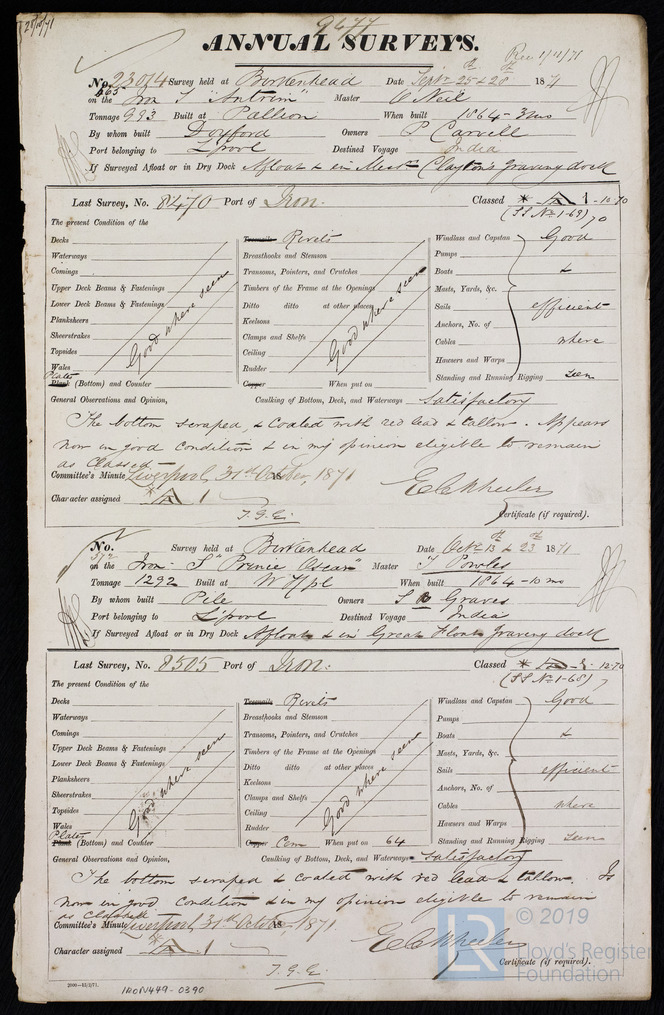 28/10/71
9477
ANNUAL SURVEYS.
Rec 1/11/71
No. 23014 Survey held at Birkenhead Date Septr 25th & 28th 1871
465
on the Iron S "Antrim" Master O'Neil
Tonnage 993 Built at Pallion When built 1864 - 3mo
By whom built Doxford Owners P Carvell
Port belonging to L'pool Destined Voyage India
If Surveyed Afloat or in Dry Dock Afloat & in Clayton's Graving dock
Last Survey, No. 8470 Port of Iron. Classed A 1 - 10.70
(SS No 1-69) 70
The present Condition of the
Decks Treenails Rivets Windlass and Capstan Good
Waterways Breasthooks and Stemson Pumps
Comings Transoms, Pointers, and Crutches Boats &
Upper Deck Beams & Fastenings Timbers of the Frame at the Openings Masts, Yards, &c.
Lower Deck Beams & Fastenings Ditto ditto at other places Sails efficient
Planksheers Keelsons Anchors, No. of
Sheerstrakes Clamps and Shelfs Cables where
Topsides Ceiling Hawsers and Warps
Wales Rudder Standing and Running Rigging seen
Good where seen Good where seen
Plates
Plank (Bottom) and Counter Copper When put on
General Observations and Opinion, Caulking of Bottom, Deck, and Waterways Satisfactory
The bottom scraped, & Coated with red lead & tallow. Appears
now in good condition & in my opinion eligible to remain
as Classed
Committee's Minute Liverpool, 31st October, 1871
Character assigned A 1
E C Wheeler
T.G.G.
Certificate (if required).
No. Survey held at Birkenhead Date Octr 13th & 23rd 1871
on the Iron S "Prince Oscar" Master T Powles
Tonnage 1292 Built at WHpl When built 1864 - 10 mo
By whom built Pile Owners S R Graves
Port belonging to L'pool Destined Voyage India
If Surveyed Afloat or in Dry Dock Afloat & in Great Float Graving dock
Last Survey, No. 8505 Port of Iron. Classed A 1 12.70
(SS No 1-68)
The present Condition of the
Decks Treenails Rivets Windlass and Capstan Good
Waterways Breasthooks and Stemson Pumps
Comings Transoms, Pointers, and Crutches Boats &
Upper Deck Beams & Fastenings Timbers of the Frame at the Openings Masts, Yards, &c.
Lower Deck Beams & Fastenings Ditto ditto at other places Sails efficient
Planksheers Keelsons Anchors, No. of
Sheerstrakes Clamps and Shelfs Cables where
Topsides Ceiling Hawsers and Warps
Wales Rudder Standing and Running Rigging seen
Good where seen Good where seen
Plates
Plank (Bottom) and Counter Copper Cem When put on 64
General Observations and Opinion, Caulking of Bottom, Deck, and Waterways Satisfactory
The bottom scraped & coated with red lead & tallow. Is
now in good condition & in my opinion eligible to remain
as Classed
Committee's Minute Liverpool, 31st October, 1871
Character assigned A 1
E C Wheeler
T.G.G.
Certificate (if required).
2000-13/2/71.
IRON449-0390
LR © 2019
Lloyd's Register
Foundation